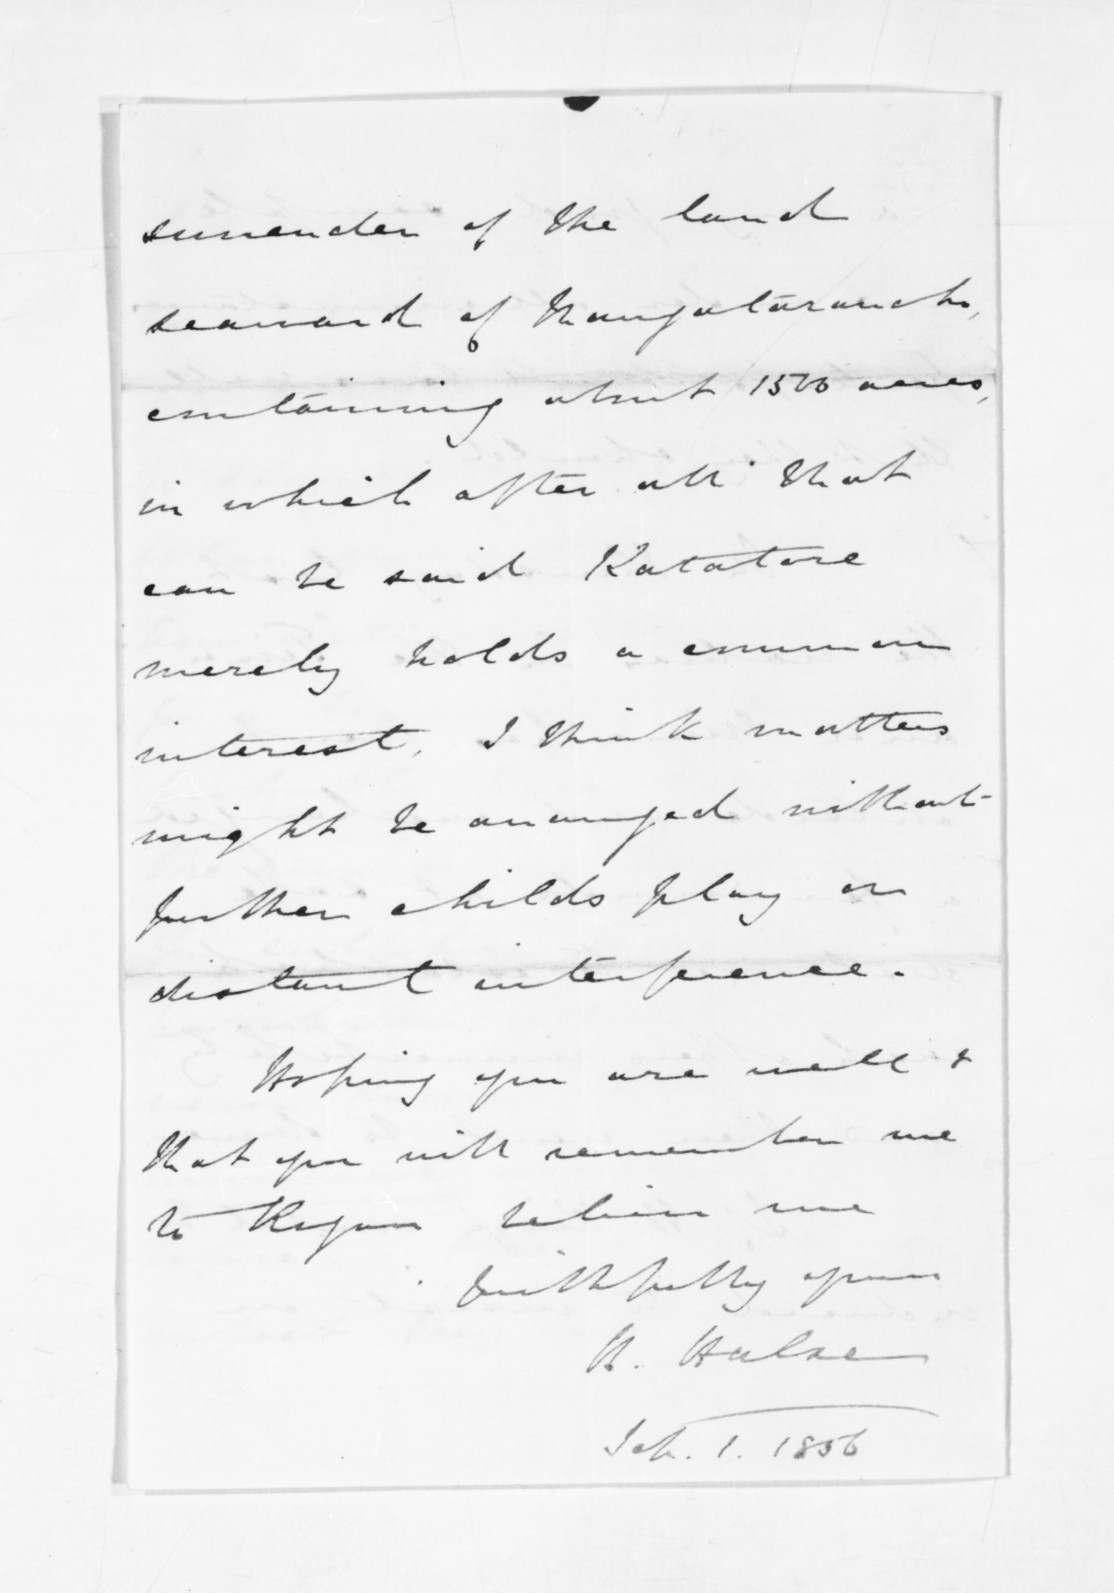 surrender of the land
seaward of Mangatarando,
containing about 1500 acres,
in which after all that
can be said Katatore
merely holds a common
interest, I think matters
might be arranged without
further childs play or
distant interference.
Hoping you are well &
that you will remember me
to Rogan believe me
faithfully yours
H. Halse
Sep. 1. 1856